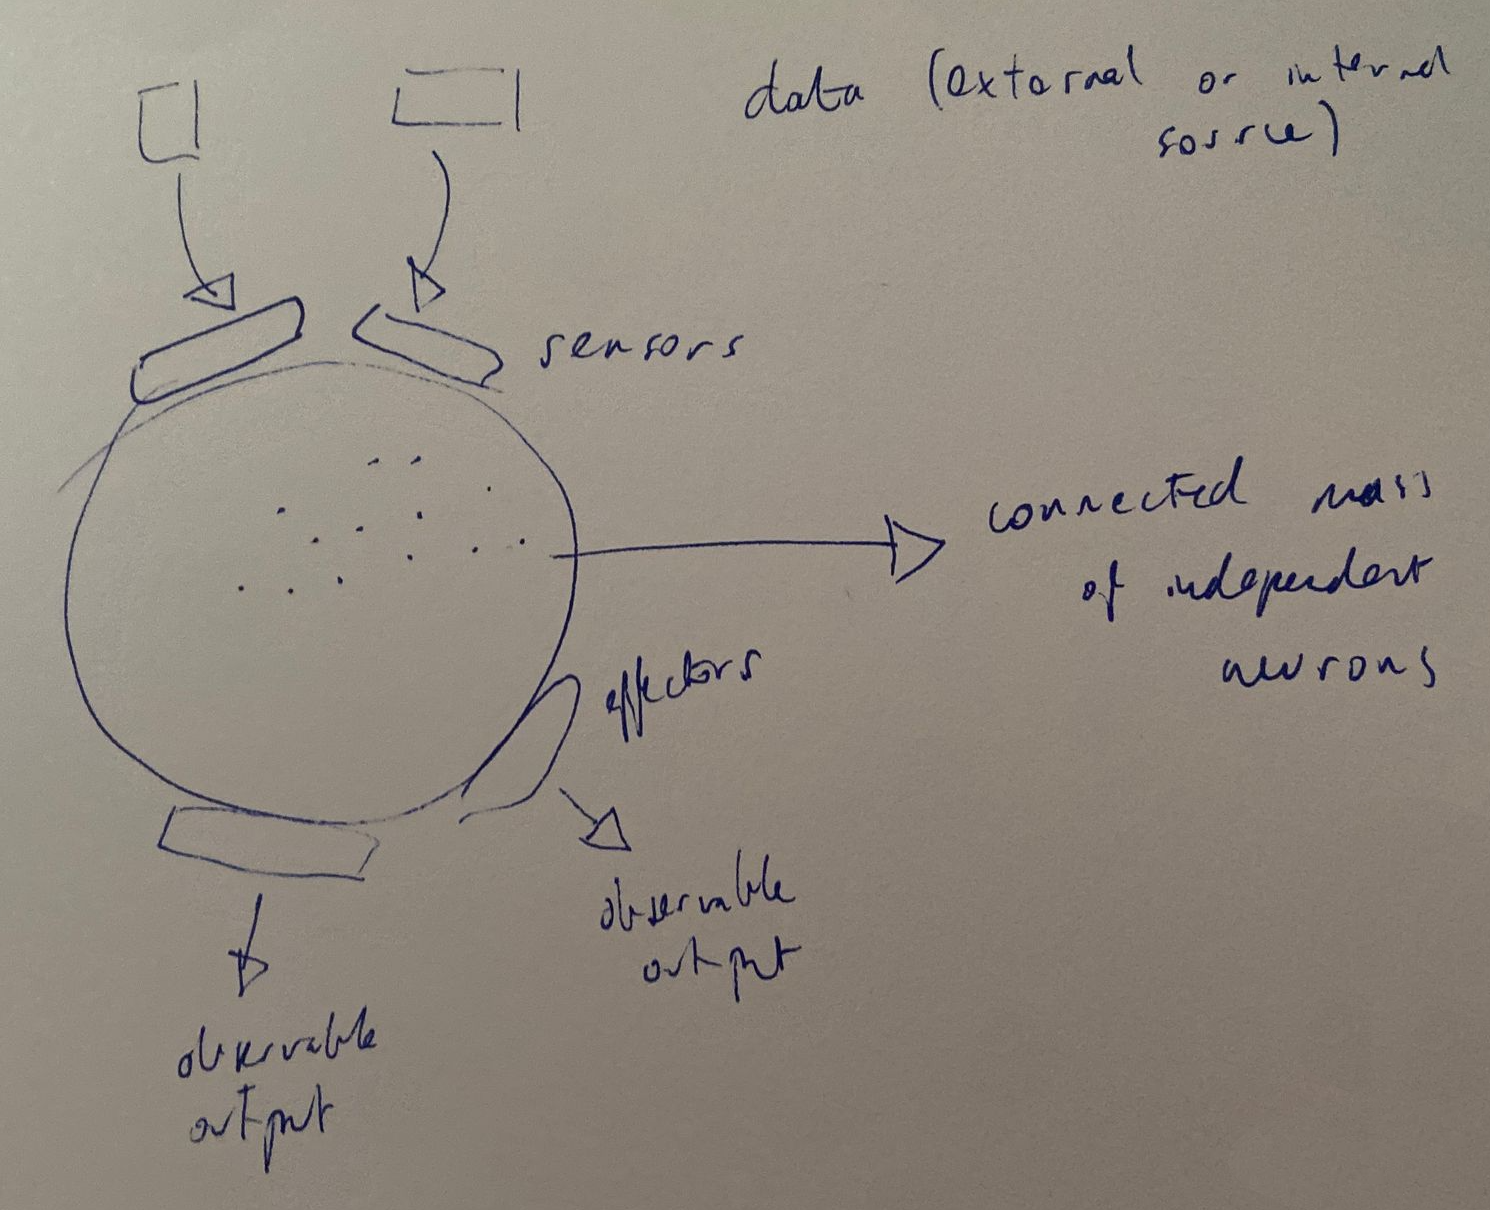 data (external or internal
source)
sensors
connected mass
of independent
neurons
effectors
observable
output
observable
output